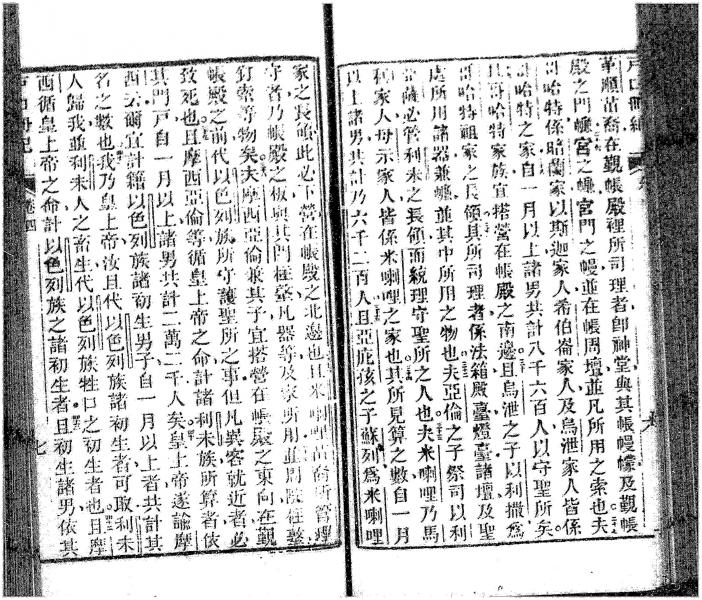 戶口冊紀
革順苗裔在覲帳殿裡所司理者卽神堂與其帳幔幪及覲帳
殿之門幪宮之幪宮門之幔並在帳周壇並凡所用之索也夫
哥哈特係暗蘭家以斯迦家人希伯崙家人及烏泄家人皆係
哥哈特之家自一月以上諸男共計八千六百人以守聖所矣
且哥哈特家族宜搭營在帳殿之南邊且烏泄之子以利撒爲
哥哈特祖家之長領其所司理者係法箱殿臺燈臺諸壇及聖
處所用諸器兼幪並其中所用之物也夫亞倫之子祭司以利
亞薩必管利未之長領而統理守聖所之人也夫米喇哩乃馬
利家人母示家人皆係米喇哩之家也其所見算之數自一月
以上諸男共計乃六千二百人且亞庇孩之子蘇列爲米喇哩
家之長領此必下營在帳殿之北邊也且米喇哩苗裔所管理
守者乃帳殿之板與其門柱臺凡器等及家所用並周院柱臺
釘索等物矣夫摩西亞倫兼其子宜搭營在帳殿之東向在覲
帳殿之前代以色列族所守護聖所之事但凡異客就近者必
致死也且摩西亞倫等循皇上帝之命計諸利未族所算者依
其門戶自一月以上諸男共計二萬二千人矣皇上帝遂諭摩
西云爾宜計籍以色列族諸初生男子自一月以上者共計其
名之數也我乃皇上帝汝且代以色列族諸初生者可取利未
人歸我並利未人之畜生代以色列族牲口之初生者也且摩
西循皇上帝之命計以色列族之諸初生者且初生諸男依其
戶口冊紀 卷四 七